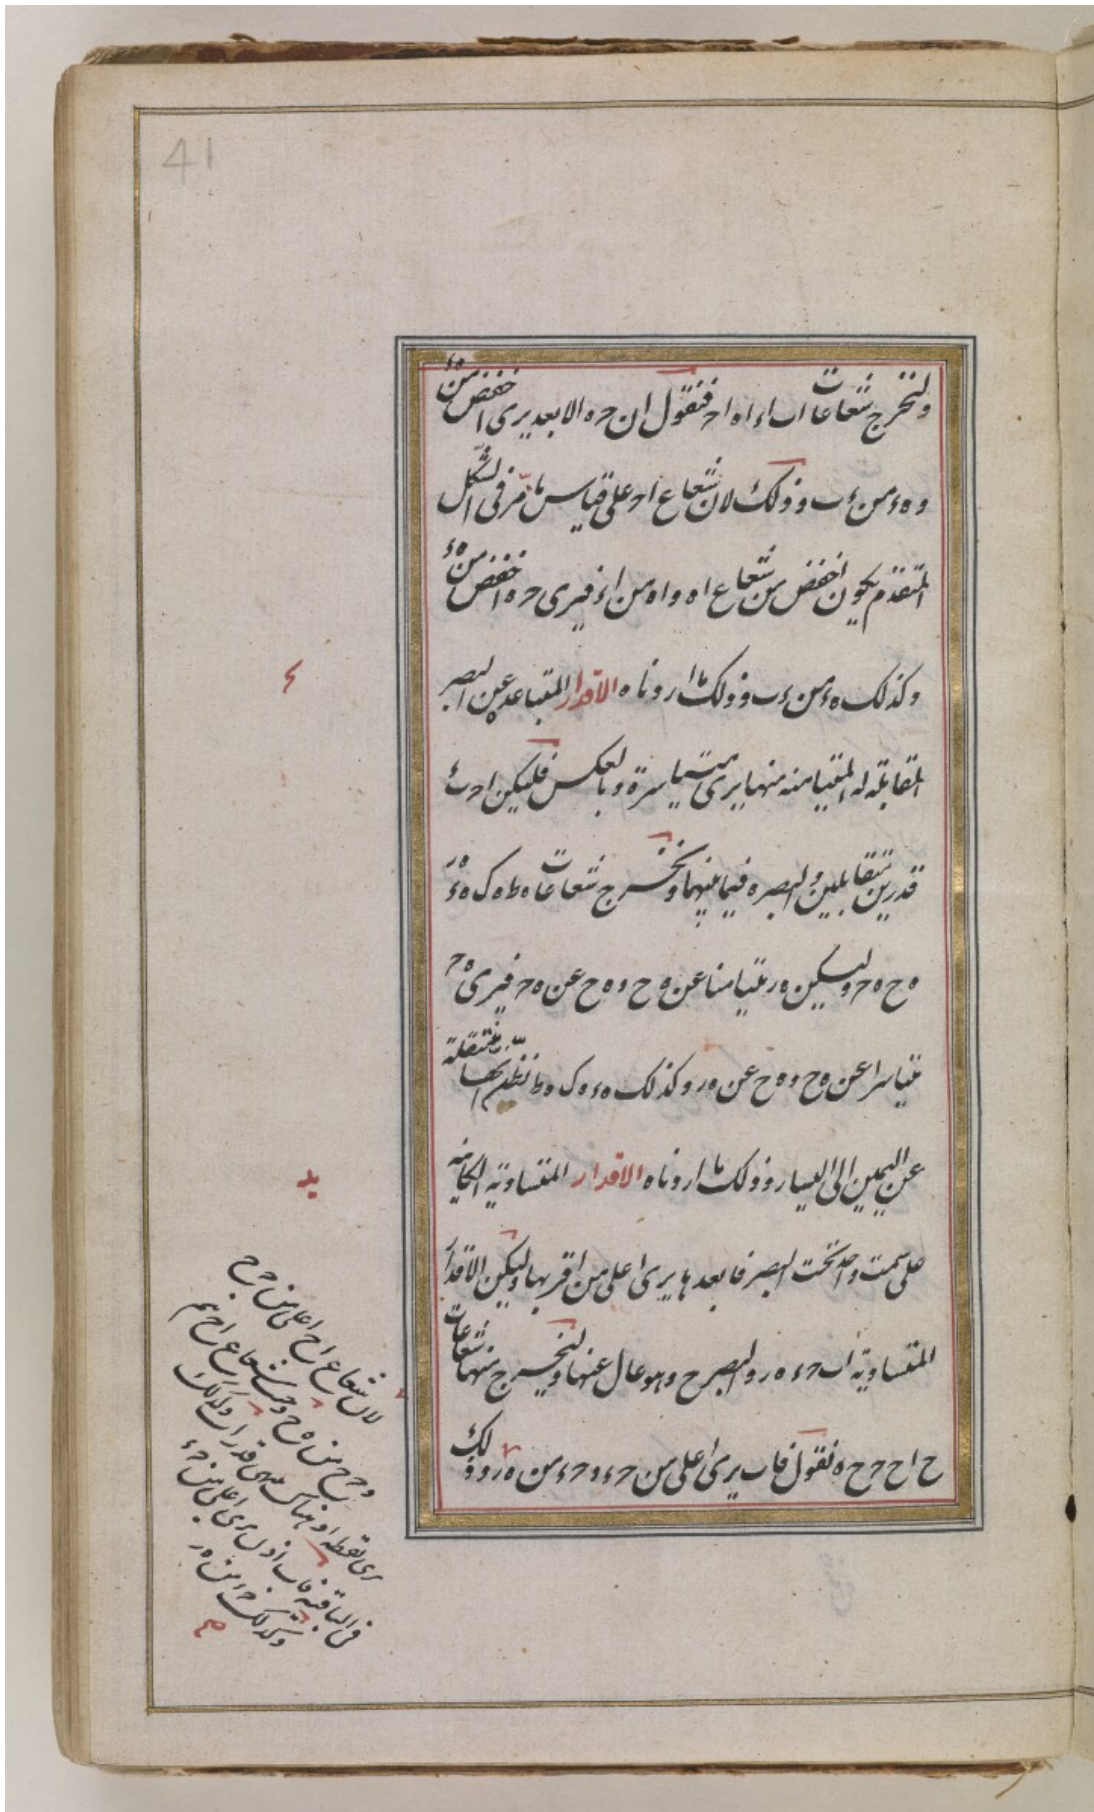 41
ولنخرج شعاعات اب اء اه اح فنقول ان حه الابعد يرى اخفض من هء
وهء من ءب وذلك لان شعاع اح على قياس ما مر فى الشكل
المتقدم يكون اخفض من شعاع اه واه من اء فيرى حه اخفض من هء
وكذلك هء من ءب وذلك ما اردناه الاقدار المتباعد عن البصر
ع
المقابلة له المتيامنه منها يرى متياسرة وبالعكس فليكن اب حء
قدرين متقابلين والبصر ه فيما بينهما ونخرج شعاعات هط هك هء هر
هح هح وليكن هر متيامنا عن هح وهح عن هح فيرى هح
متياسرا عن هح وهح عن هر وكذلك هء وهك هط نظن انها منتقلة
عن اليمين الى اليسار وذلك ما اردناه الاقدار المتساويه الكاينه
يد
على سمت واحد تحت البصر فابعدها يرى اعلى من اقربها وليكن الاقدار
المتساويه اب حء هر والبصر ح وهو عال عنها ولنخرج منها شعاعات
ح اح حح ه نقول فاب يرى اعلى من حء وحء من هر وذلك
لان شعاع اح اعلى من حح
وحح من هح وحيث شعاع اح ثم
يرى نقطه ا وهناك قدر اب وكذلك
فى الباقيه فاب اذن يرى اعلى من حء
وكذلك حء من هر
صح